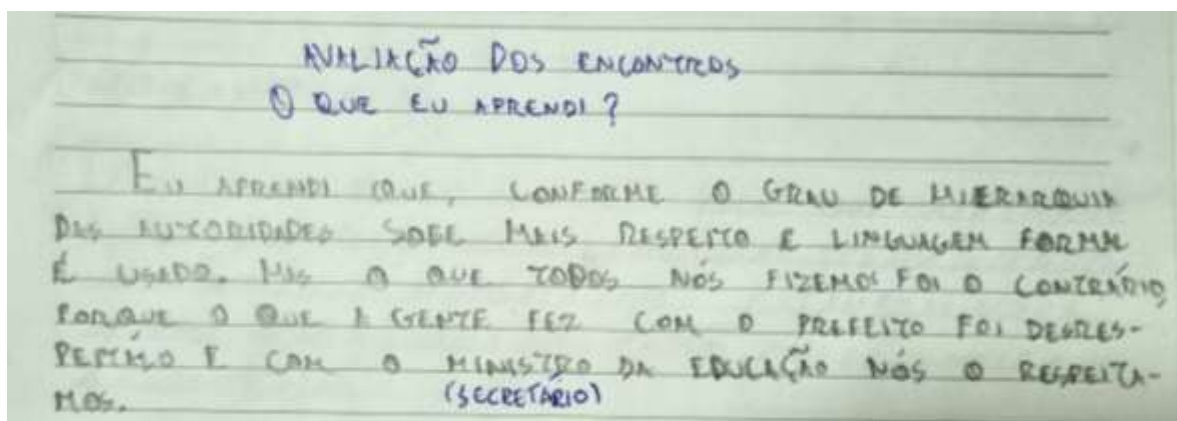 AVALIAÇÃO DOS ENCONTROS
O QUE EU APRENDI?
EU APRENDI QUE, CONFORME O GRAU DE HIERARQUIA
DAS AUTORIDADES SOBE MAIS RESPEITO E LINGUAGEM FORMAL
É USADO. MAS O QUE TODOS NÓS FIZEMOS FOI O CONTRÁRIO,
PORQUE O QUE A GENTE FEZ COM O PREFEITO FOI DESRES-
PEITÁ-LO E COM O MINISTRO DA EDUCAÇÃO NÓS O RESPEITA-
MOS. (SECRETÁRIO)